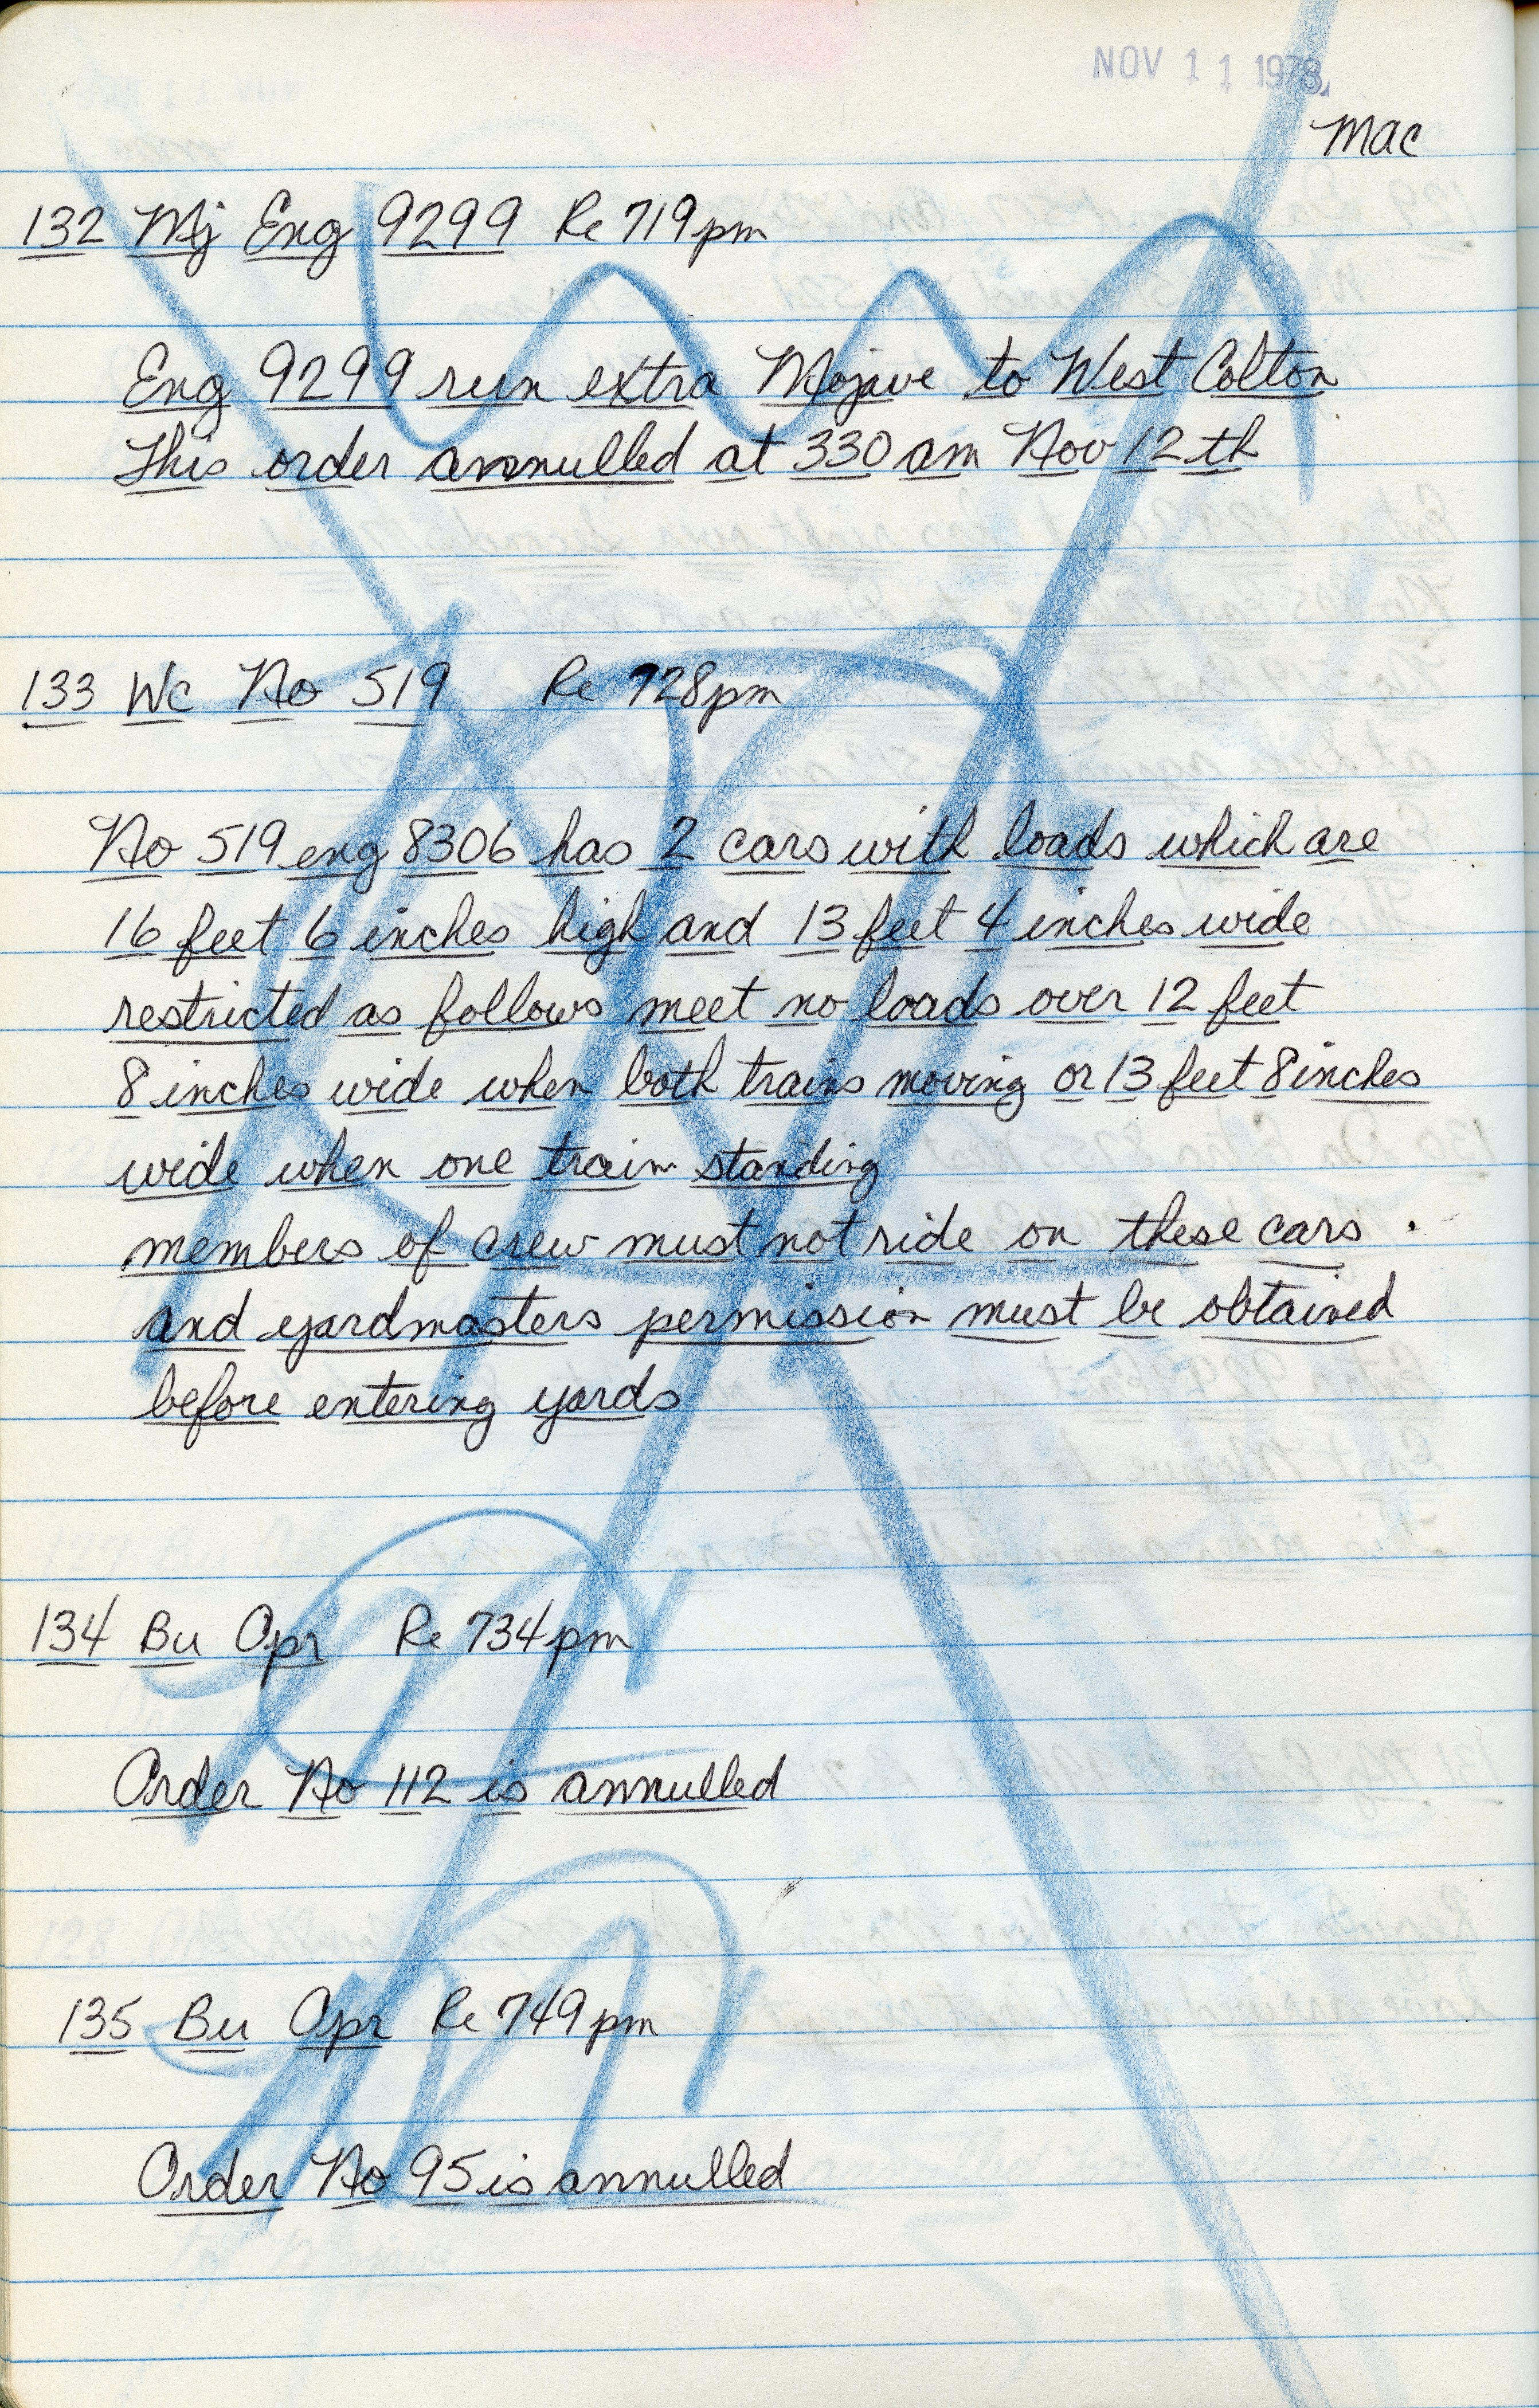 NOV 11 1978
mac
132 Mj Eng 9299 Re 719pm
Eng 9299 run extra Mojave to West Colton
This order annulled at 330am Nov 12th
133 Wc No 519 Re 728pm
No 519 eng 8306 has 2 cars with loads which are
16 feet 6 inches high and 13 feet 4 inches wide
restricted as follows meet no loads over 12 feet
8 inches wide when both trains moving or 13 feet 8 inches
wide when one train standing
members of crew must not ride on these cars
and yardmasters permission must be obtained
before entering yards
134 Bu Opr Re 734pm
Order No 112 is annulled
135 Bu Opr Re 749pm
Order No 95 is annulled